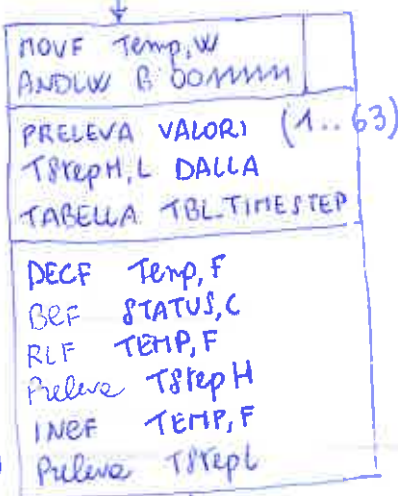 MOVF Temp,W
ANDLW B 00111111
PRELEVA VALORI (1..63)
TStepH,L DALLA
TABELLA TBL_TIMESTEP
DECF Temp,F
BCF STATUS,C
RLF TEMP,F
Preleva TStepH
INCF TEMP,F
Preleva TStepL